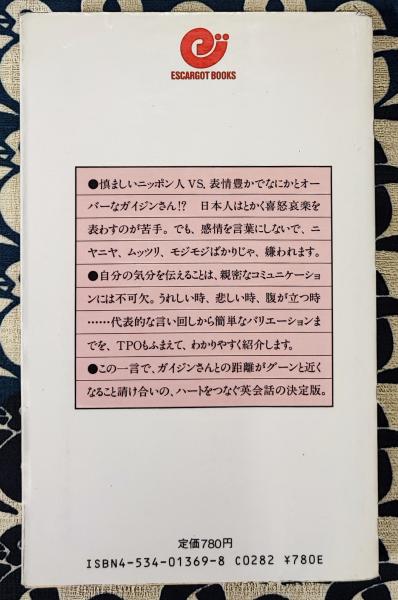 ESCARGOT BOOKS
●慎ましいニッポン人VS.表情豊かでなにかとオー
バーなガイジンさん!? 日本人はとかく喜怒哀楽を
表わすのが苦手。でも、感情を言葉にしないで、ニ
ヤニヤ、ムッツリ、モジモジばかりじゃ、嫌われます。
●自分の気分を伝えることは、親密なコミュニケーショ
ンには不可欠。うれしい時、悲しい時、腹が立つ時
……代表的な言い回しから簡単なバリエーションま
でを、TPOもふまえて、わかりやすく紹介します。
●この一言で、ガイジンさんとの距離がグーンと近く
なること請け合いの、ハートをつなぐ英会話の決定版。
定価780円
ISBN4-534-01369-8 C0282 ¥780E